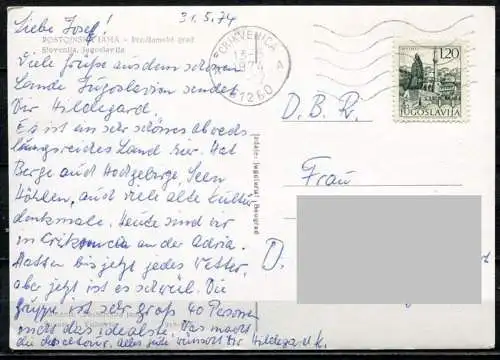 Liebe Josef! 31.5.74
POSTOJNSKA JAMA - Predjamski grad
Slovenija, Jugoslavija
Viele Grüße aus dem schönen
Lande Jugoslavien sendet
Dir Hildegard.
Es ist ein sehr schönes abwechs
lungsreiches Land hier. Hat
Berge auch Hochgebirge, Seen
Höhlen, auch viele alte Kultur
denkmale. Heute sind wir
in Crikvenica an der Adria.
Hatten bis jetzt jedes Wetter,
aber jetzt ist es schwül. Die
Gruppe ist sehr groß 40 Personen
nicht das idealste. Das macht
alles gute wünscht Dir Hildegard
CRIKVENICA
1974
A
51260
1,20
JUGOSLAVIJA
D. B. R.
Frau
D.
Izdaje: Jugoslavija, Beograd